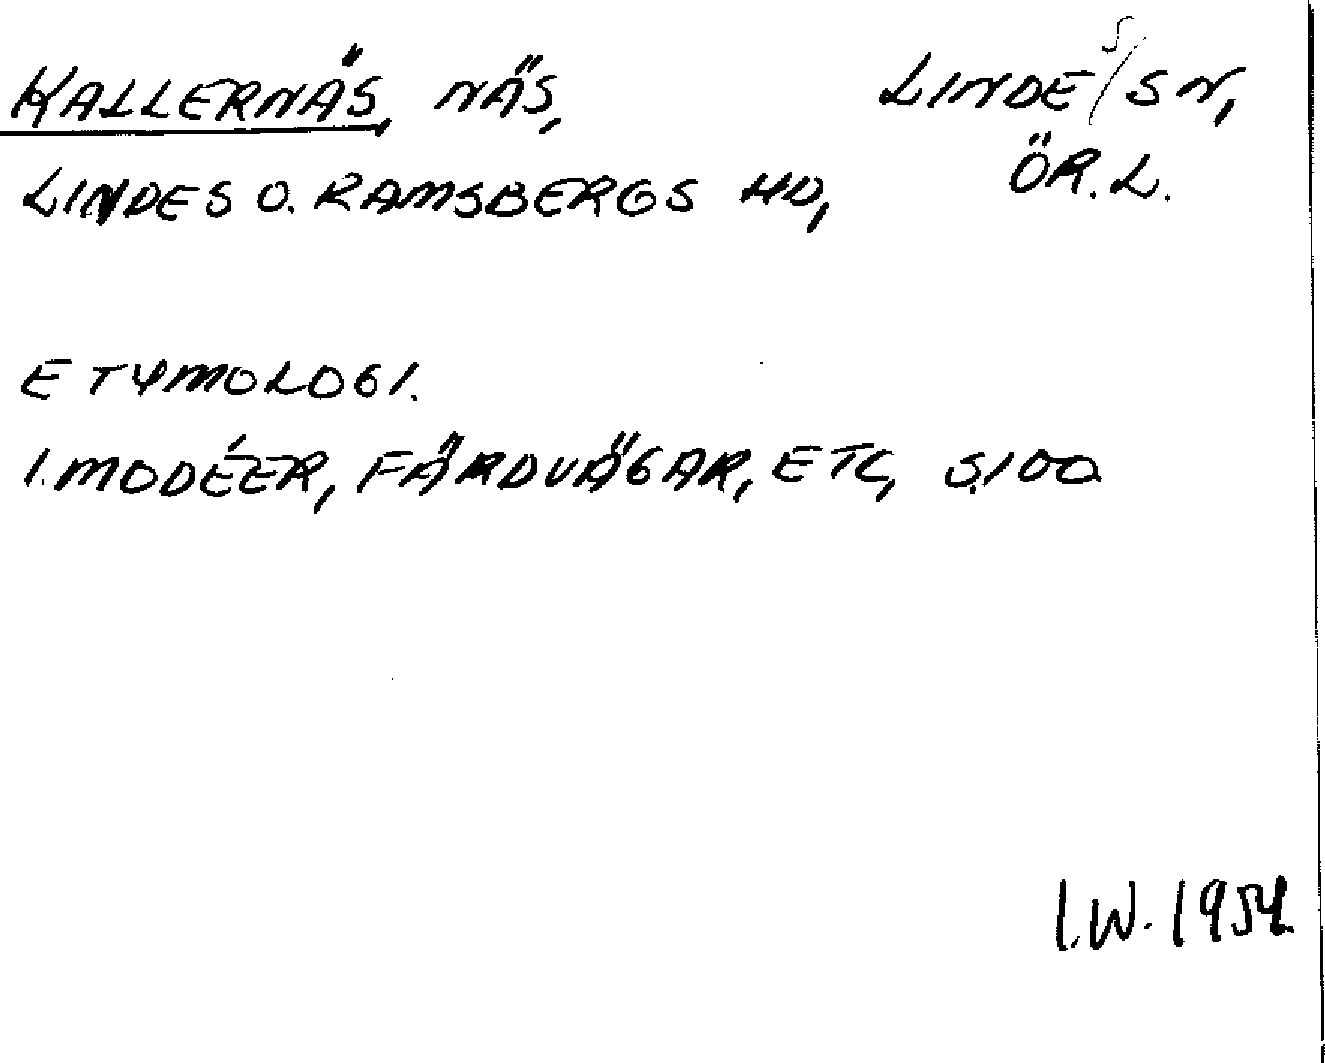 KALLERNÄS, NÄS, LINDES SN,
LINDES O. RAMSBERGS HD, ÖR. L.
ETYMOLOGI.
I. MODÉER, FÄRDVÄGAR, ETC, S. 100
I.W. 1954.